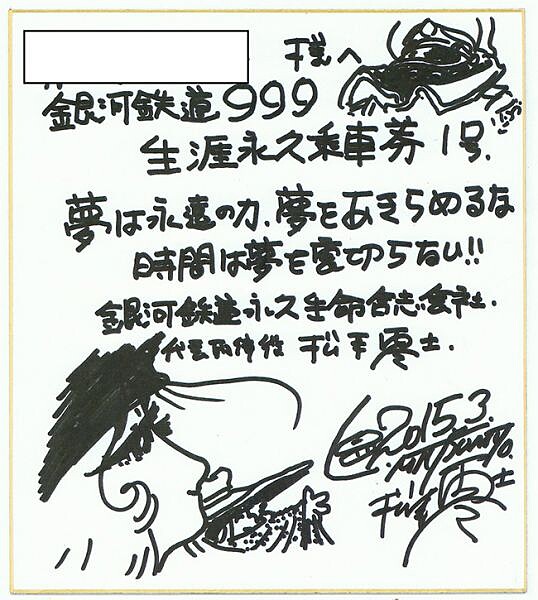 様へ
銀河鉄道999
生涯永久乗車券 1号.
夢は永遠の力.夢をあきらめるな
時間は夢を裏切らない!!
銀河鉄道永久生命合志会社.
代表取締役 松本零士.
2015.3.
松本零士